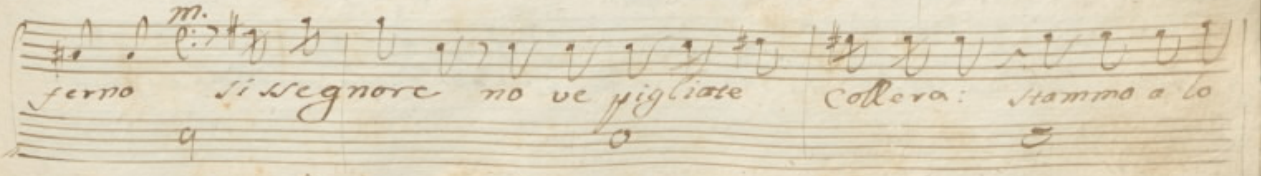 m.
ferno si ssegnore no ve pigliate Collera: stammo a lo